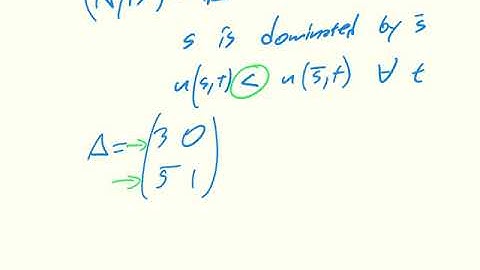 s is dominated by s̄
u(s,t) < u(s̄,t) ∀ t
A = → (3 0
→ 5 1)